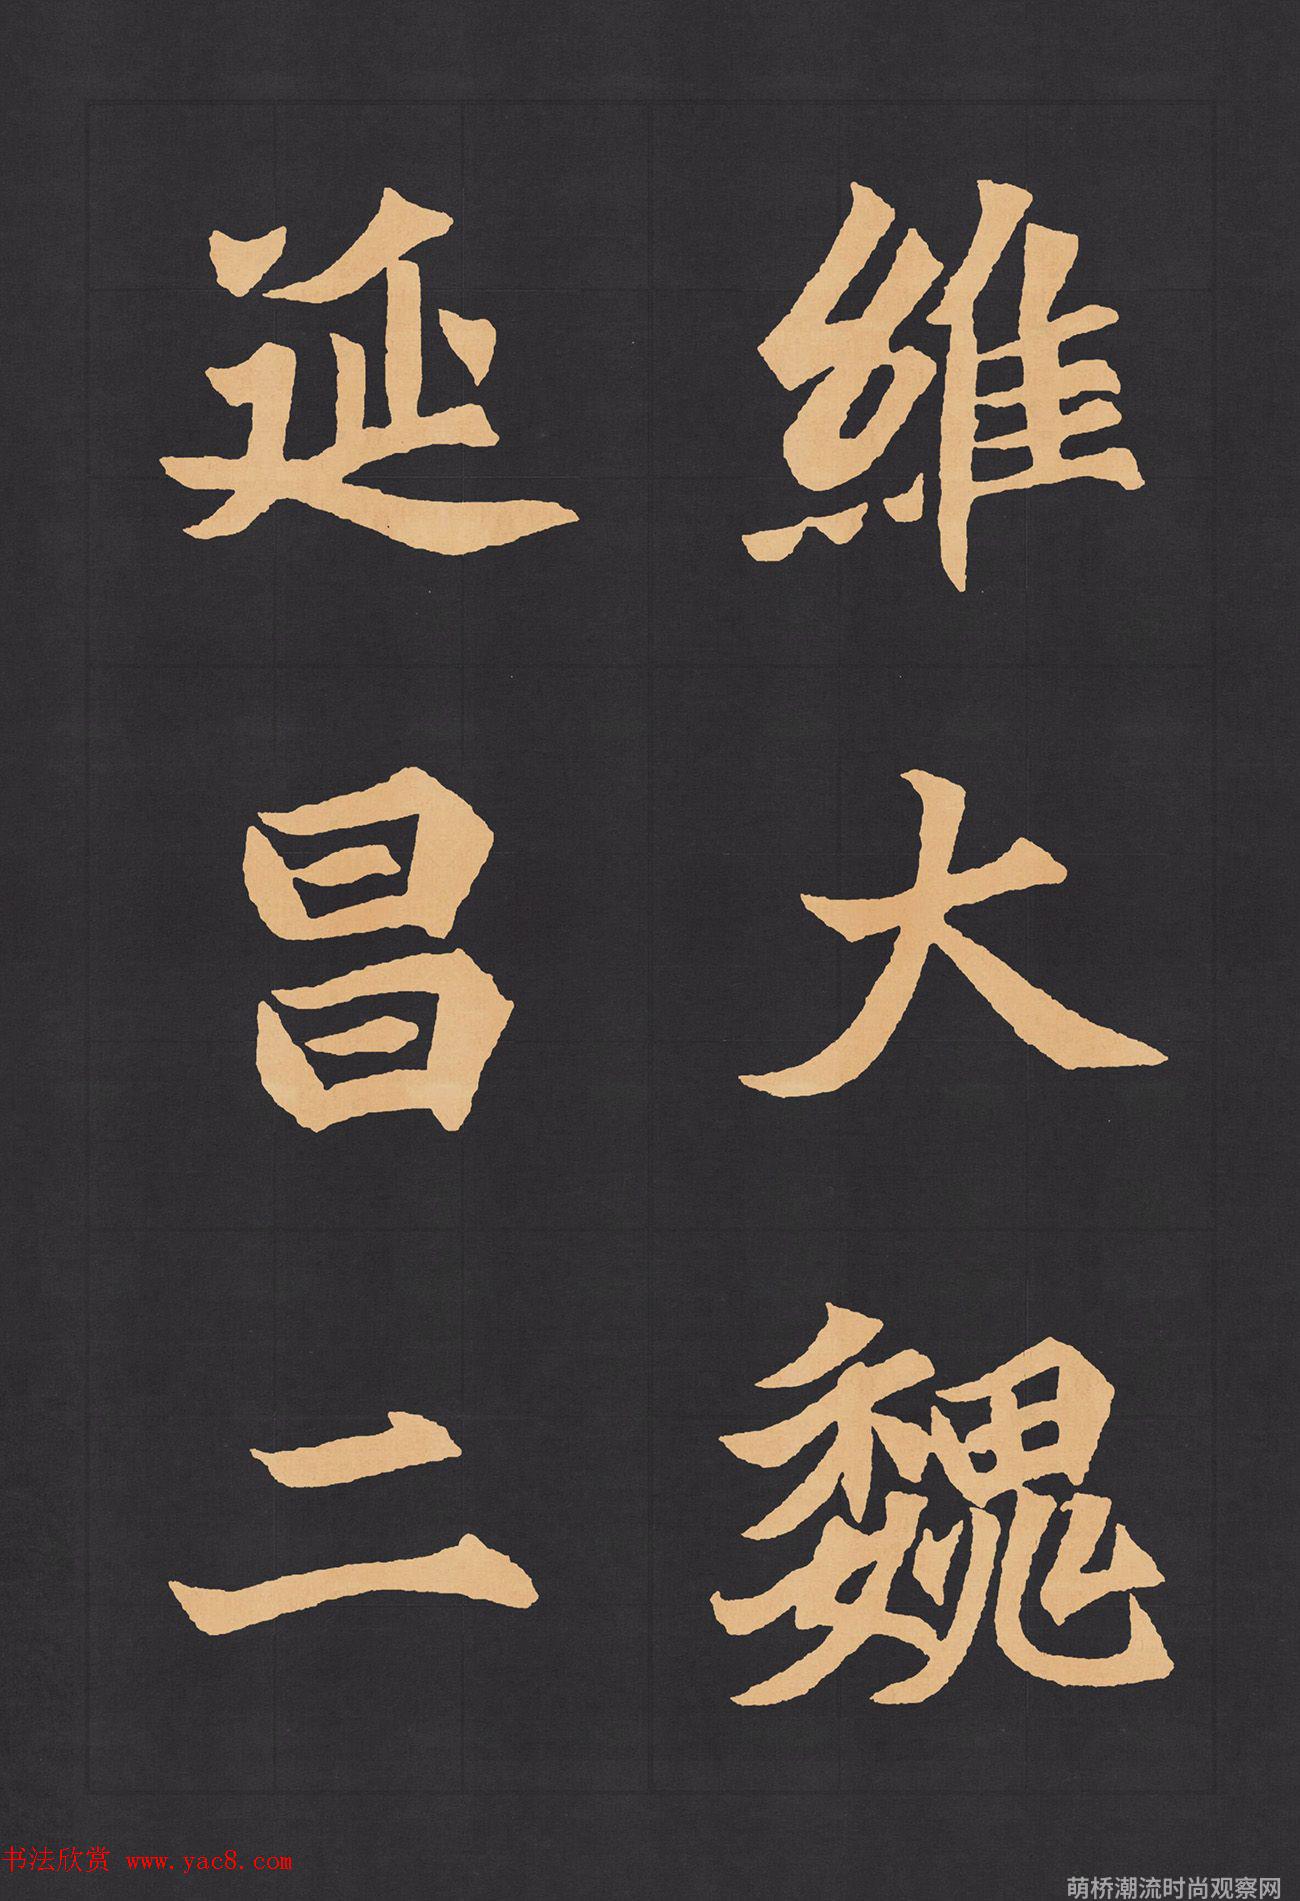 維大魏
延昌二
书法欣赏 www.yac8.com
萌桥潮流时尚观察网